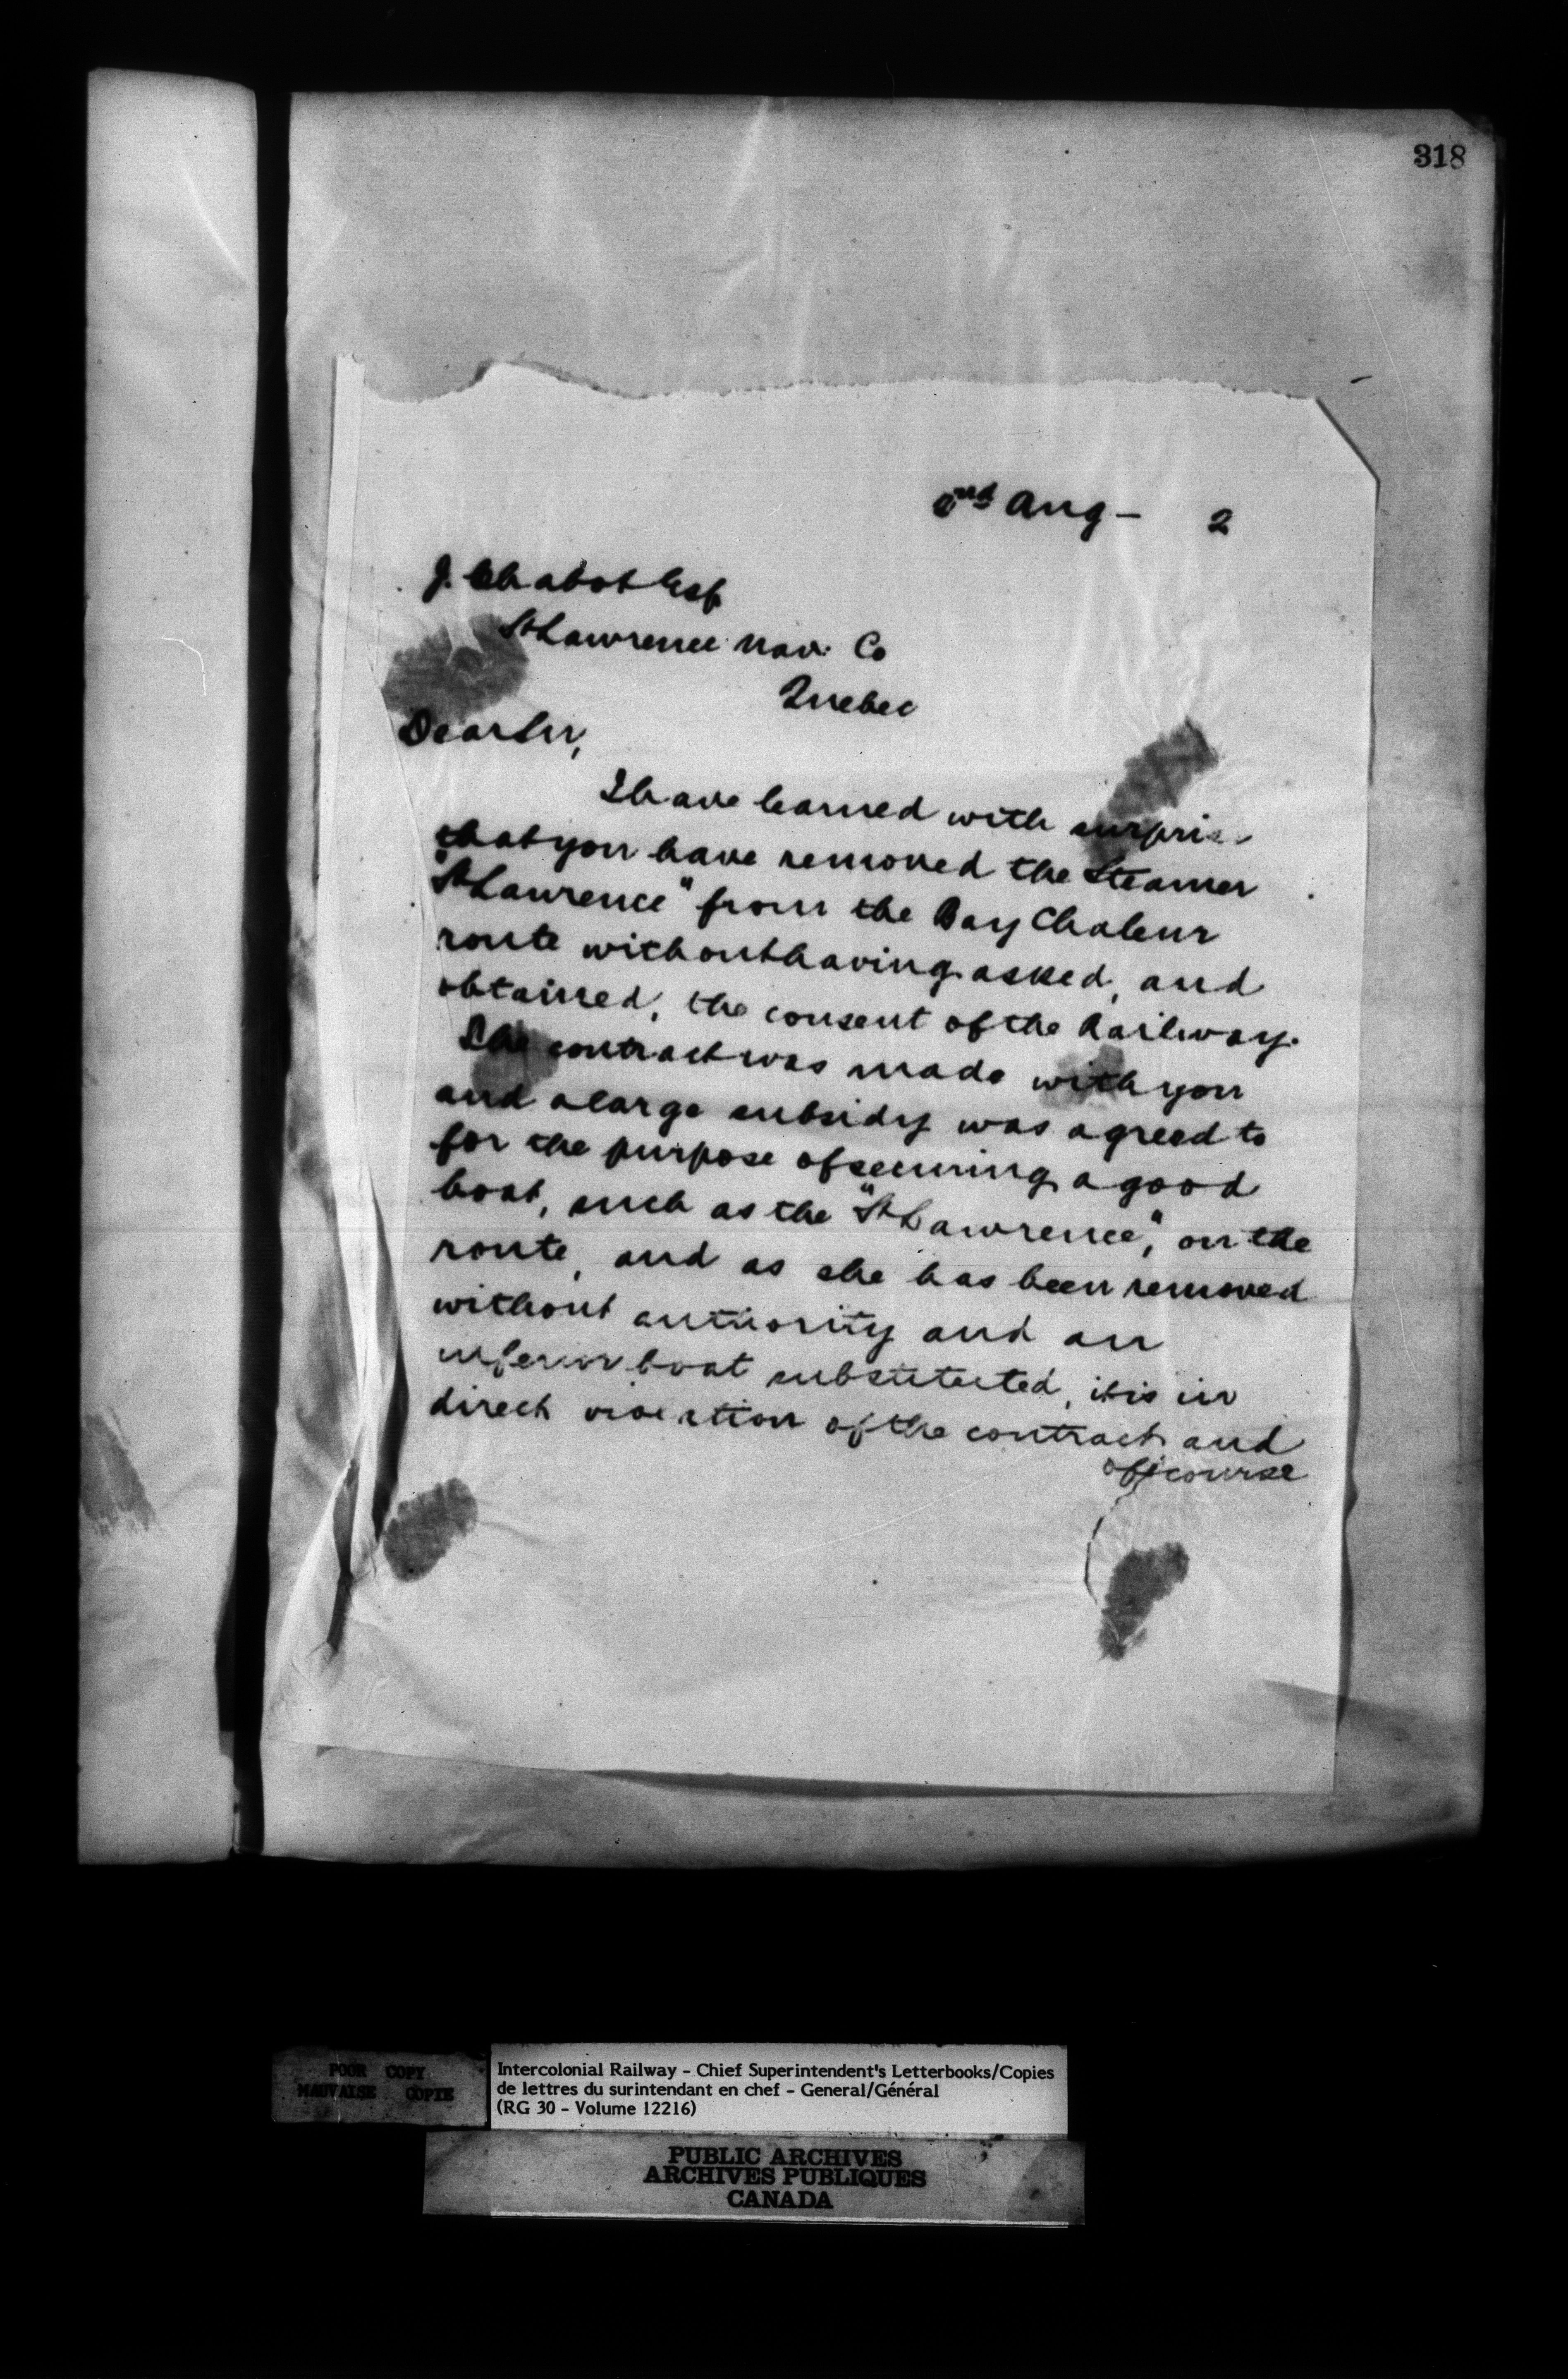 318
2nd Aug - 2
J. Chabot Esq
St Lawrence Nav. Co
Quebec
Dear Sir,
I have learned with surprise
that you have removed the Steamer
"St Lawrence" from the Bay Chaleur
route without having asked, and
obtained, the consent of the Railway.
The contract was made with you
and a large subsidy was agreed to
for the purpose of securing a good
boat, such as the "St Lawrence", on the
route, and as she has been removed
without authority and an
inferior boat substituted, it is in
direct violation of the contract and
of course
POOR COPY
MAUVAISE COPIE
Intercolonial Railway - Chief Superintendent's Letterbooks/Copies
de lettres du surintendant en chef - General/Général
(RG 30 - Volume 12216)
PUBLIC ARCHIVES
ARCHIVES PUBLIQUES
CANADA